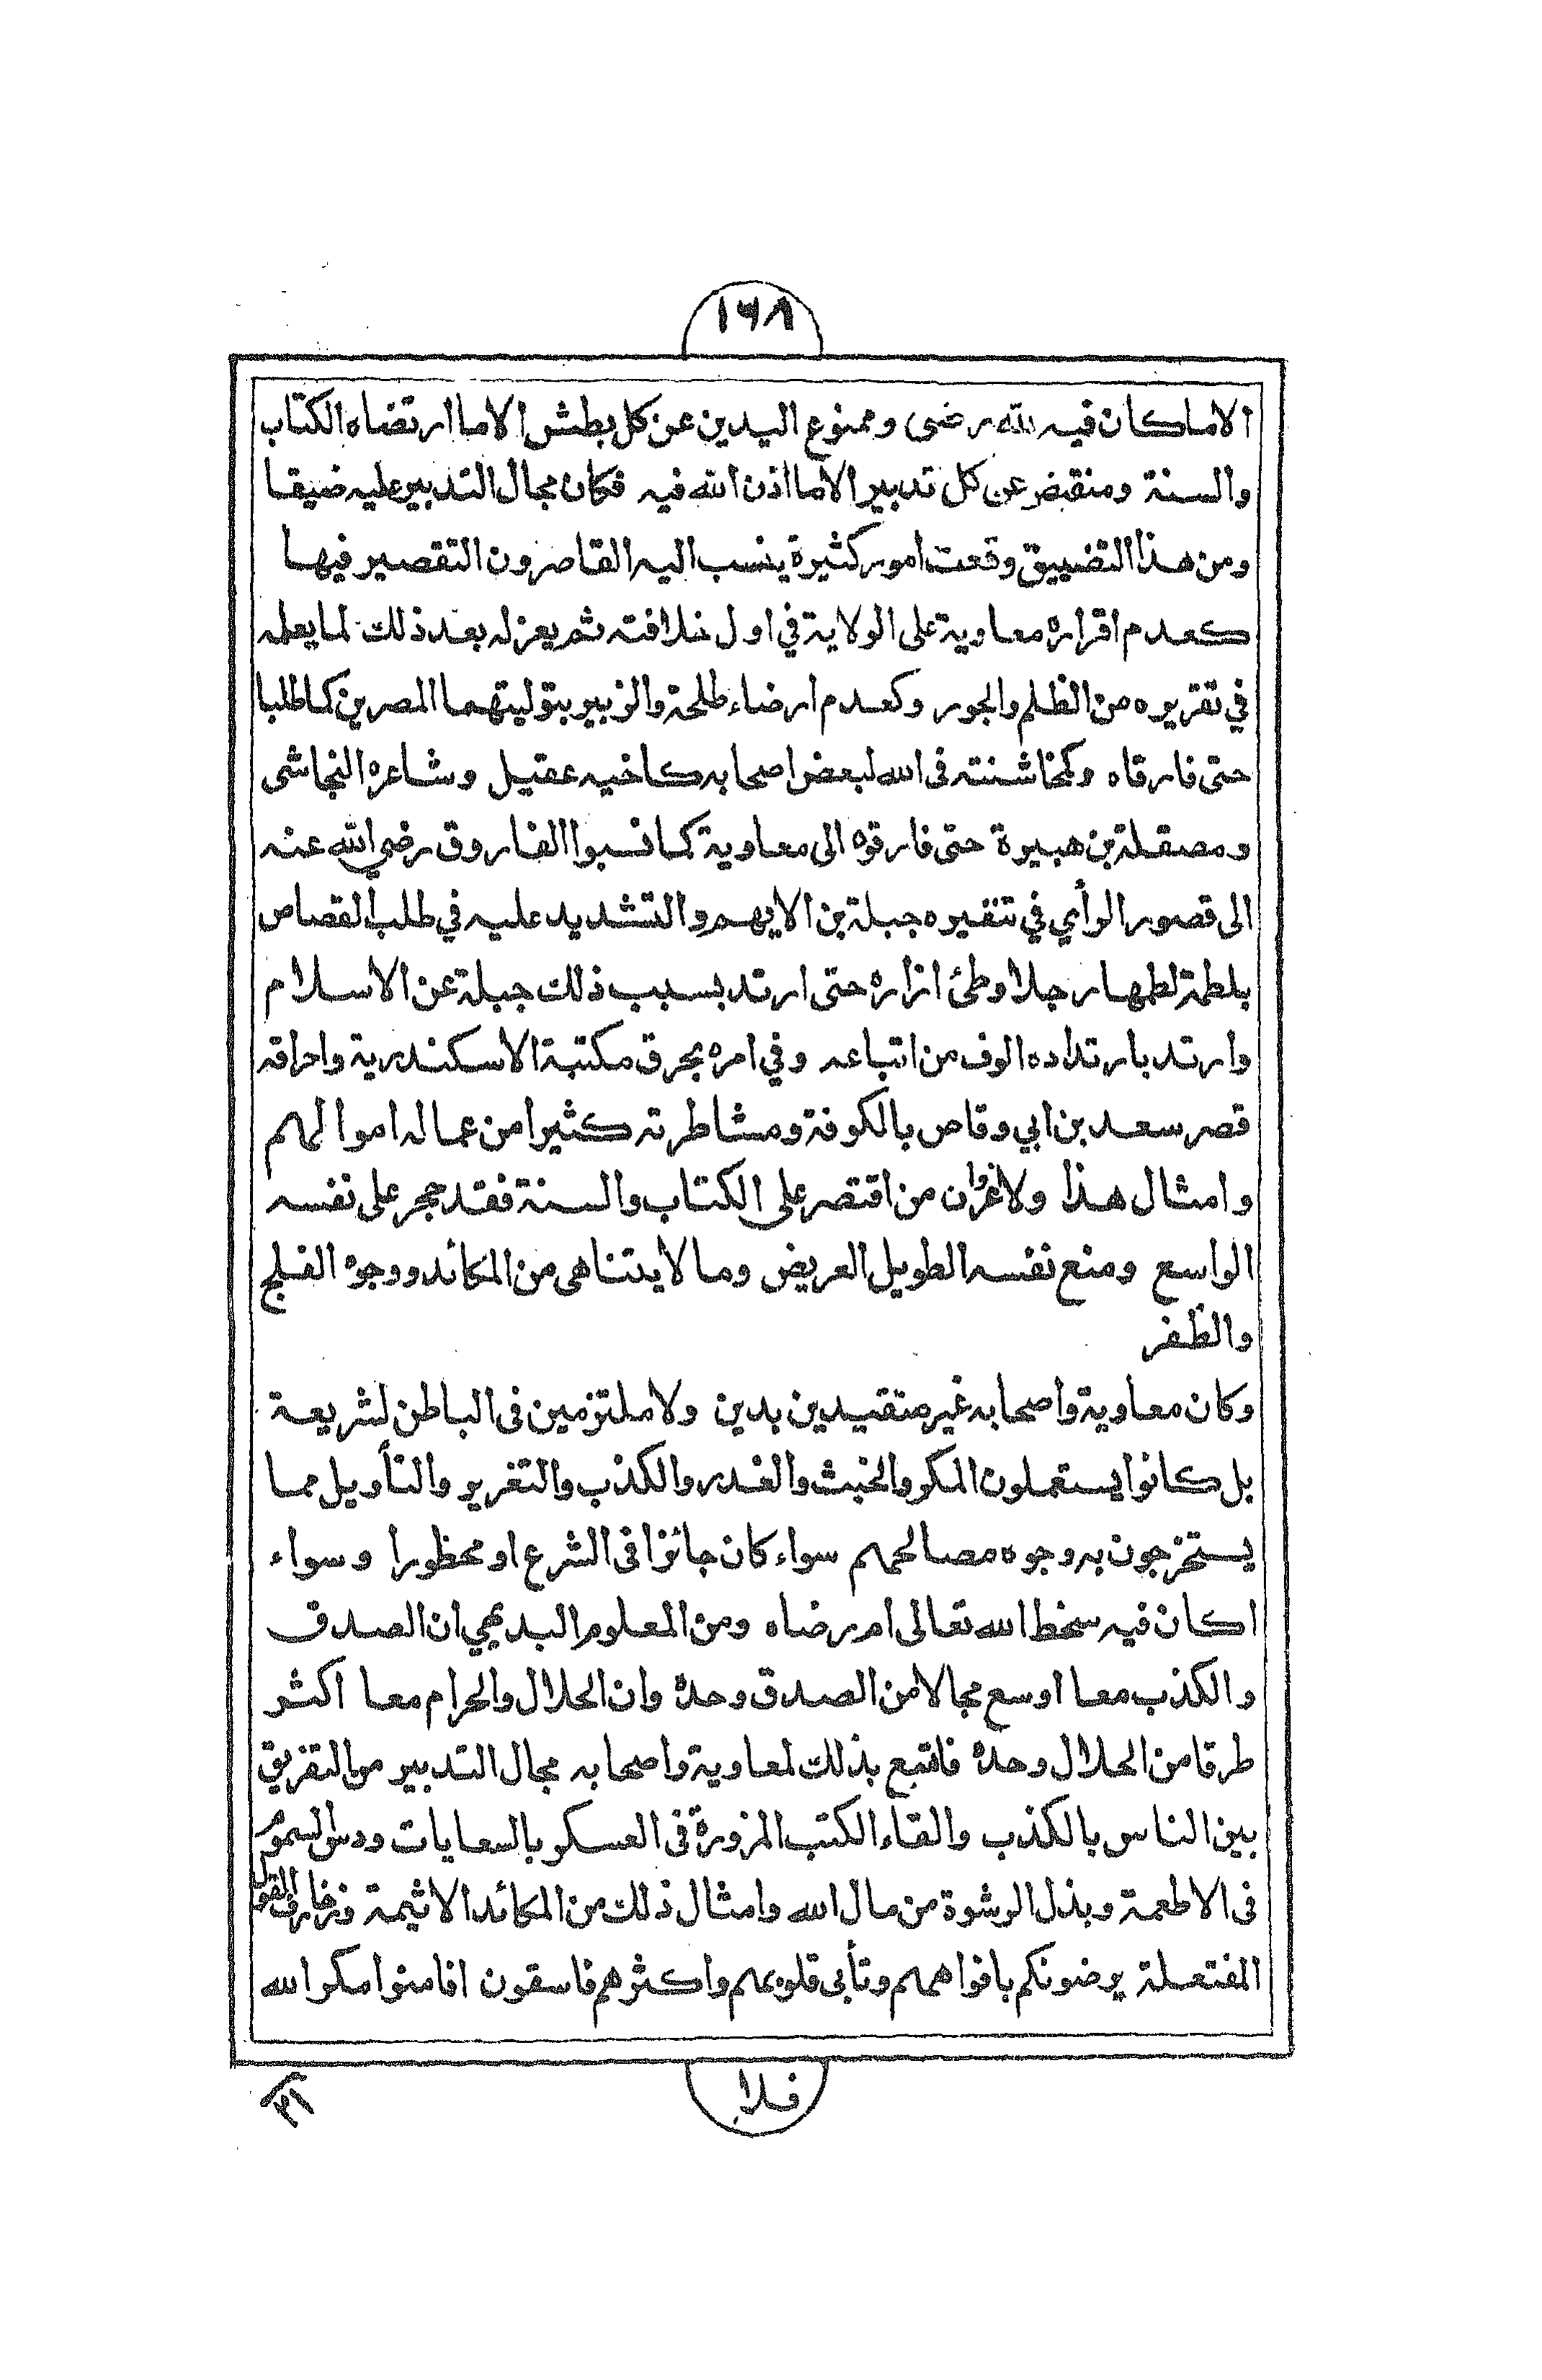 ١٦٨
الا ما كان فيه لله رضى وممنوع اليدين عن كل بطش الا ما ارتضاه الكتاب
والسنة ومنقبض عن كل تدبير الا ما اذن الله فيه فكان مجال التدبير عليه ضيقا
ومن هذا التضييق وقعت امور كثيرة ينسب اليه القاصرون التقصير فيها
كعدم اقراره معاوية على الولاية في اول خلافته ثم يعزله بعد ذلك لما يعلمه
في تقريره من الظلم والجور وكعدم ارضاء طلحة والزبير بتوليتهما المصرين كما طلبا
حتى فارقاه وكمخاشنته فى الله لبعض اصحابه كاخيه عقيل وشاعره النجاشى
ومصقلة بن هبيرة حتى فارقوه الى معاوية كما نسبوا الفاروق رضي الله عنه
الى قصور الرأي في تنفيره جبلة بن الايهم والتشديد عليه في طلب القصاص
بلطمة لطمها رجلا وطئ ازاره حتى ارتد بسبب ذلك جبلة عن الاسلام
وارتد بارتداده الوف من اتباعه وفي امره بحرق مكتبة الاسكندرية واحراقه
قصر سعد بن ابي وقاص بالكوفة ومشاطرته كثيرا من عماله اموالهم
وامثال هذا ولا غرو ان من اقتصر على الكتاب والسنة فقد حجر على نفسه
الواسع ومنع نفسه الطويل العريض وما لا يتناهى من المكائد ووجوه الفلج
والظفر
وكان معاوية واصحابه غير متقيدين بدين ولا ملتزمين فى الباطن لشريعة
بل كانوا يستعملون المكر والخبث والغدر والكذب والتغرير والتأويل مما
يستخرجون به وجوه مصالحهم سواء كان جائزا فى الشرع او محظورا وسواء
اكان فيه سخط الله تعالى ام رضاه ومن المعلوم البديهي ان الصدق
والكذب معا اوسع مجالا من الصدق وحده وان الحلال والحرام معا اكثر
طرقا من الحلال وحده فاتسع بذلك لمعاوية واصحابه مجال التدبير من التفريق
بين الناس بالكذب والقاء الكتب المزورة فى العسكر بالسعايات ودس السموم
فى الاطعمة وبذل الرشوة من مال الله وامثال ذلك من المكائد الاثيمة وزخارف القول
المفتعلة يرضونكم بافواههم وتأبى قلوبهم واكثرهم فاسقون افامنوا مكر الله
فلا